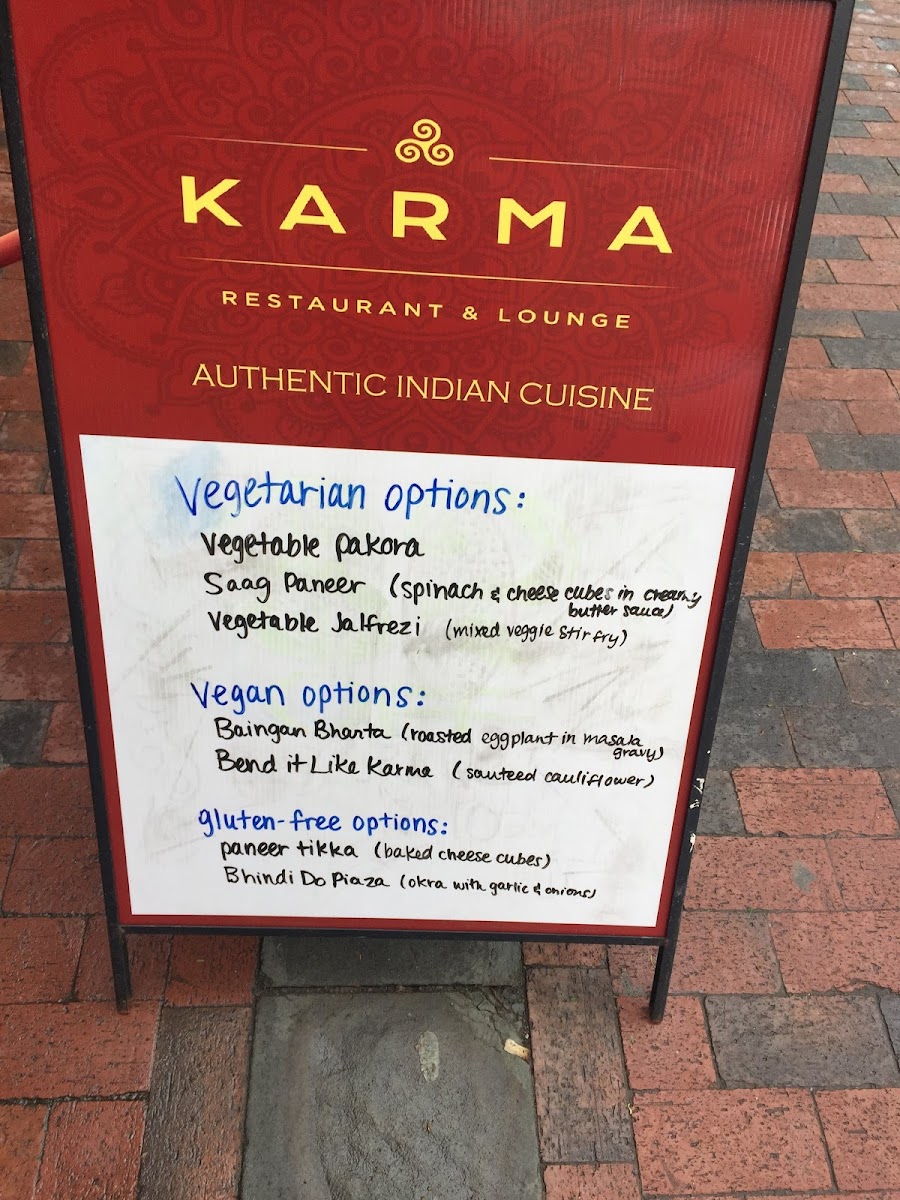 KARMA
RESTAURANT & LOUNGE
AUTHENTIC INDIAN CUISINE
Vegetarian options:
Vegetable Pakora
Saag Paneer (spinach & cheese cubes in creamy
butter sauce)
Vegetable Jalfrezi (mixed veggie stir fry)
Vegan options:
Baingan Bharta (roasted eggplant in masala
gravy)
Bend it Like Karma (sauteed cauliflower)
gluten-free options:
paneer tikka (baked cheese cubes)
Bhindi Do Piaza (okra with garlic & onions)